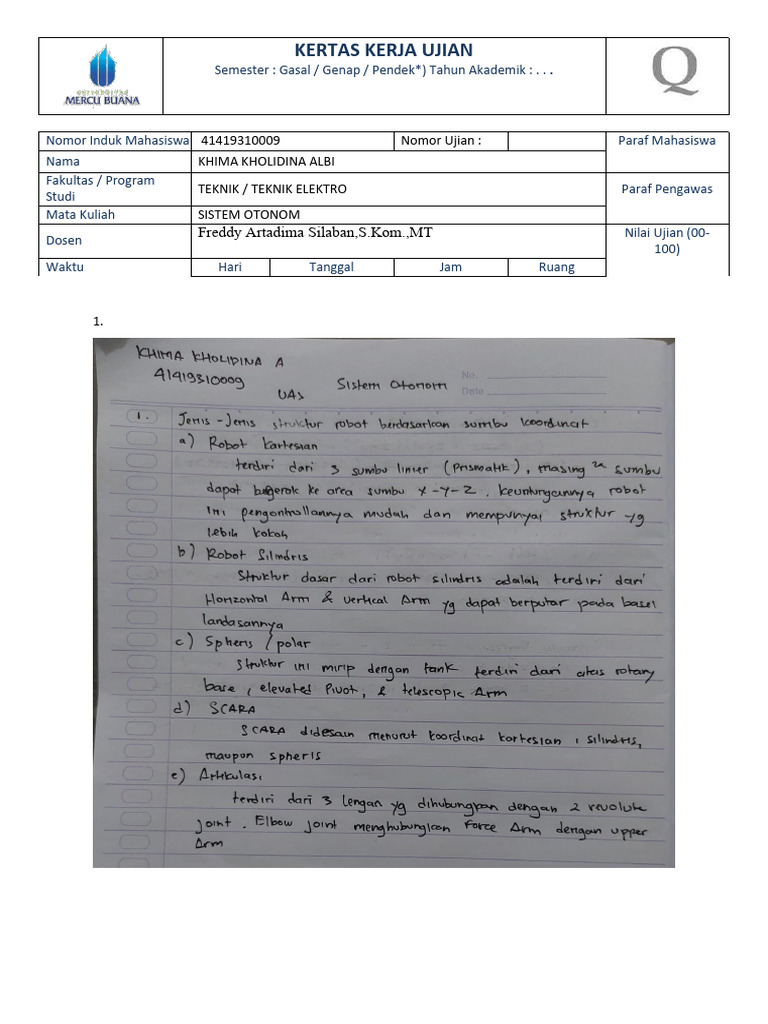 KERTAS KERJA UJIAN
Semester : Gasal / Genap / Pendek*) Tahun Akademik : . . .
UNIVERSITAS
MERCU BUANA
Q
Nomor Induk Mahasiswa 41419310009 Nomor Ujian : Paraf Mahasiswa
Nama KHIMA KHOLIDINA ALBI
Fakultas / Program Studi TEKNIK / TEKNIK ELEKTRO Paraf Pengawas
Mata Kuliah SISTEM OTONOM
Dosen Freddy Artadima Silaban,S.Kom.,MT Nilai Ujian (00-100)
Waktu Hari Tanggal Jam Ruang
1.
KHIMA KHOLIDINA A
41419310009
UAS Sistem Otonom
No.
Date
1. Jenis-Jenis struktur robot berdasarkan sumbu koordinat
a) Robot kartesian
terdiri dari 3 sumbu linier (Prismatik), masing 2a sumbu
dapat bergerak ke area sumbu x-y-z. keuntungannya robot
ini pengontrollannya mudah dan mempunyai struktur yg
lebih kokoh
b) Robot Silindris
Struktur dasar dari robot silindris adalah terdiri dari
Horizontal Arm & vertical Arm yg dapat berputar pada basel
landasannya
c) Spheris / polar
Struktur ini mirip dengan tank terdiri dari atas rotary
base, elevated Pivot, & telescopic Arm
d) SCARA
SCARA didesain menurut koordinat kartesian, silindris,
maupun spheris
e) Artikulasi
terdiri dari 3 lengan yg dihubungkan dengan 2 revolute
joint. Elbow joint menghubungkan Force Arm dengan upper
Arm